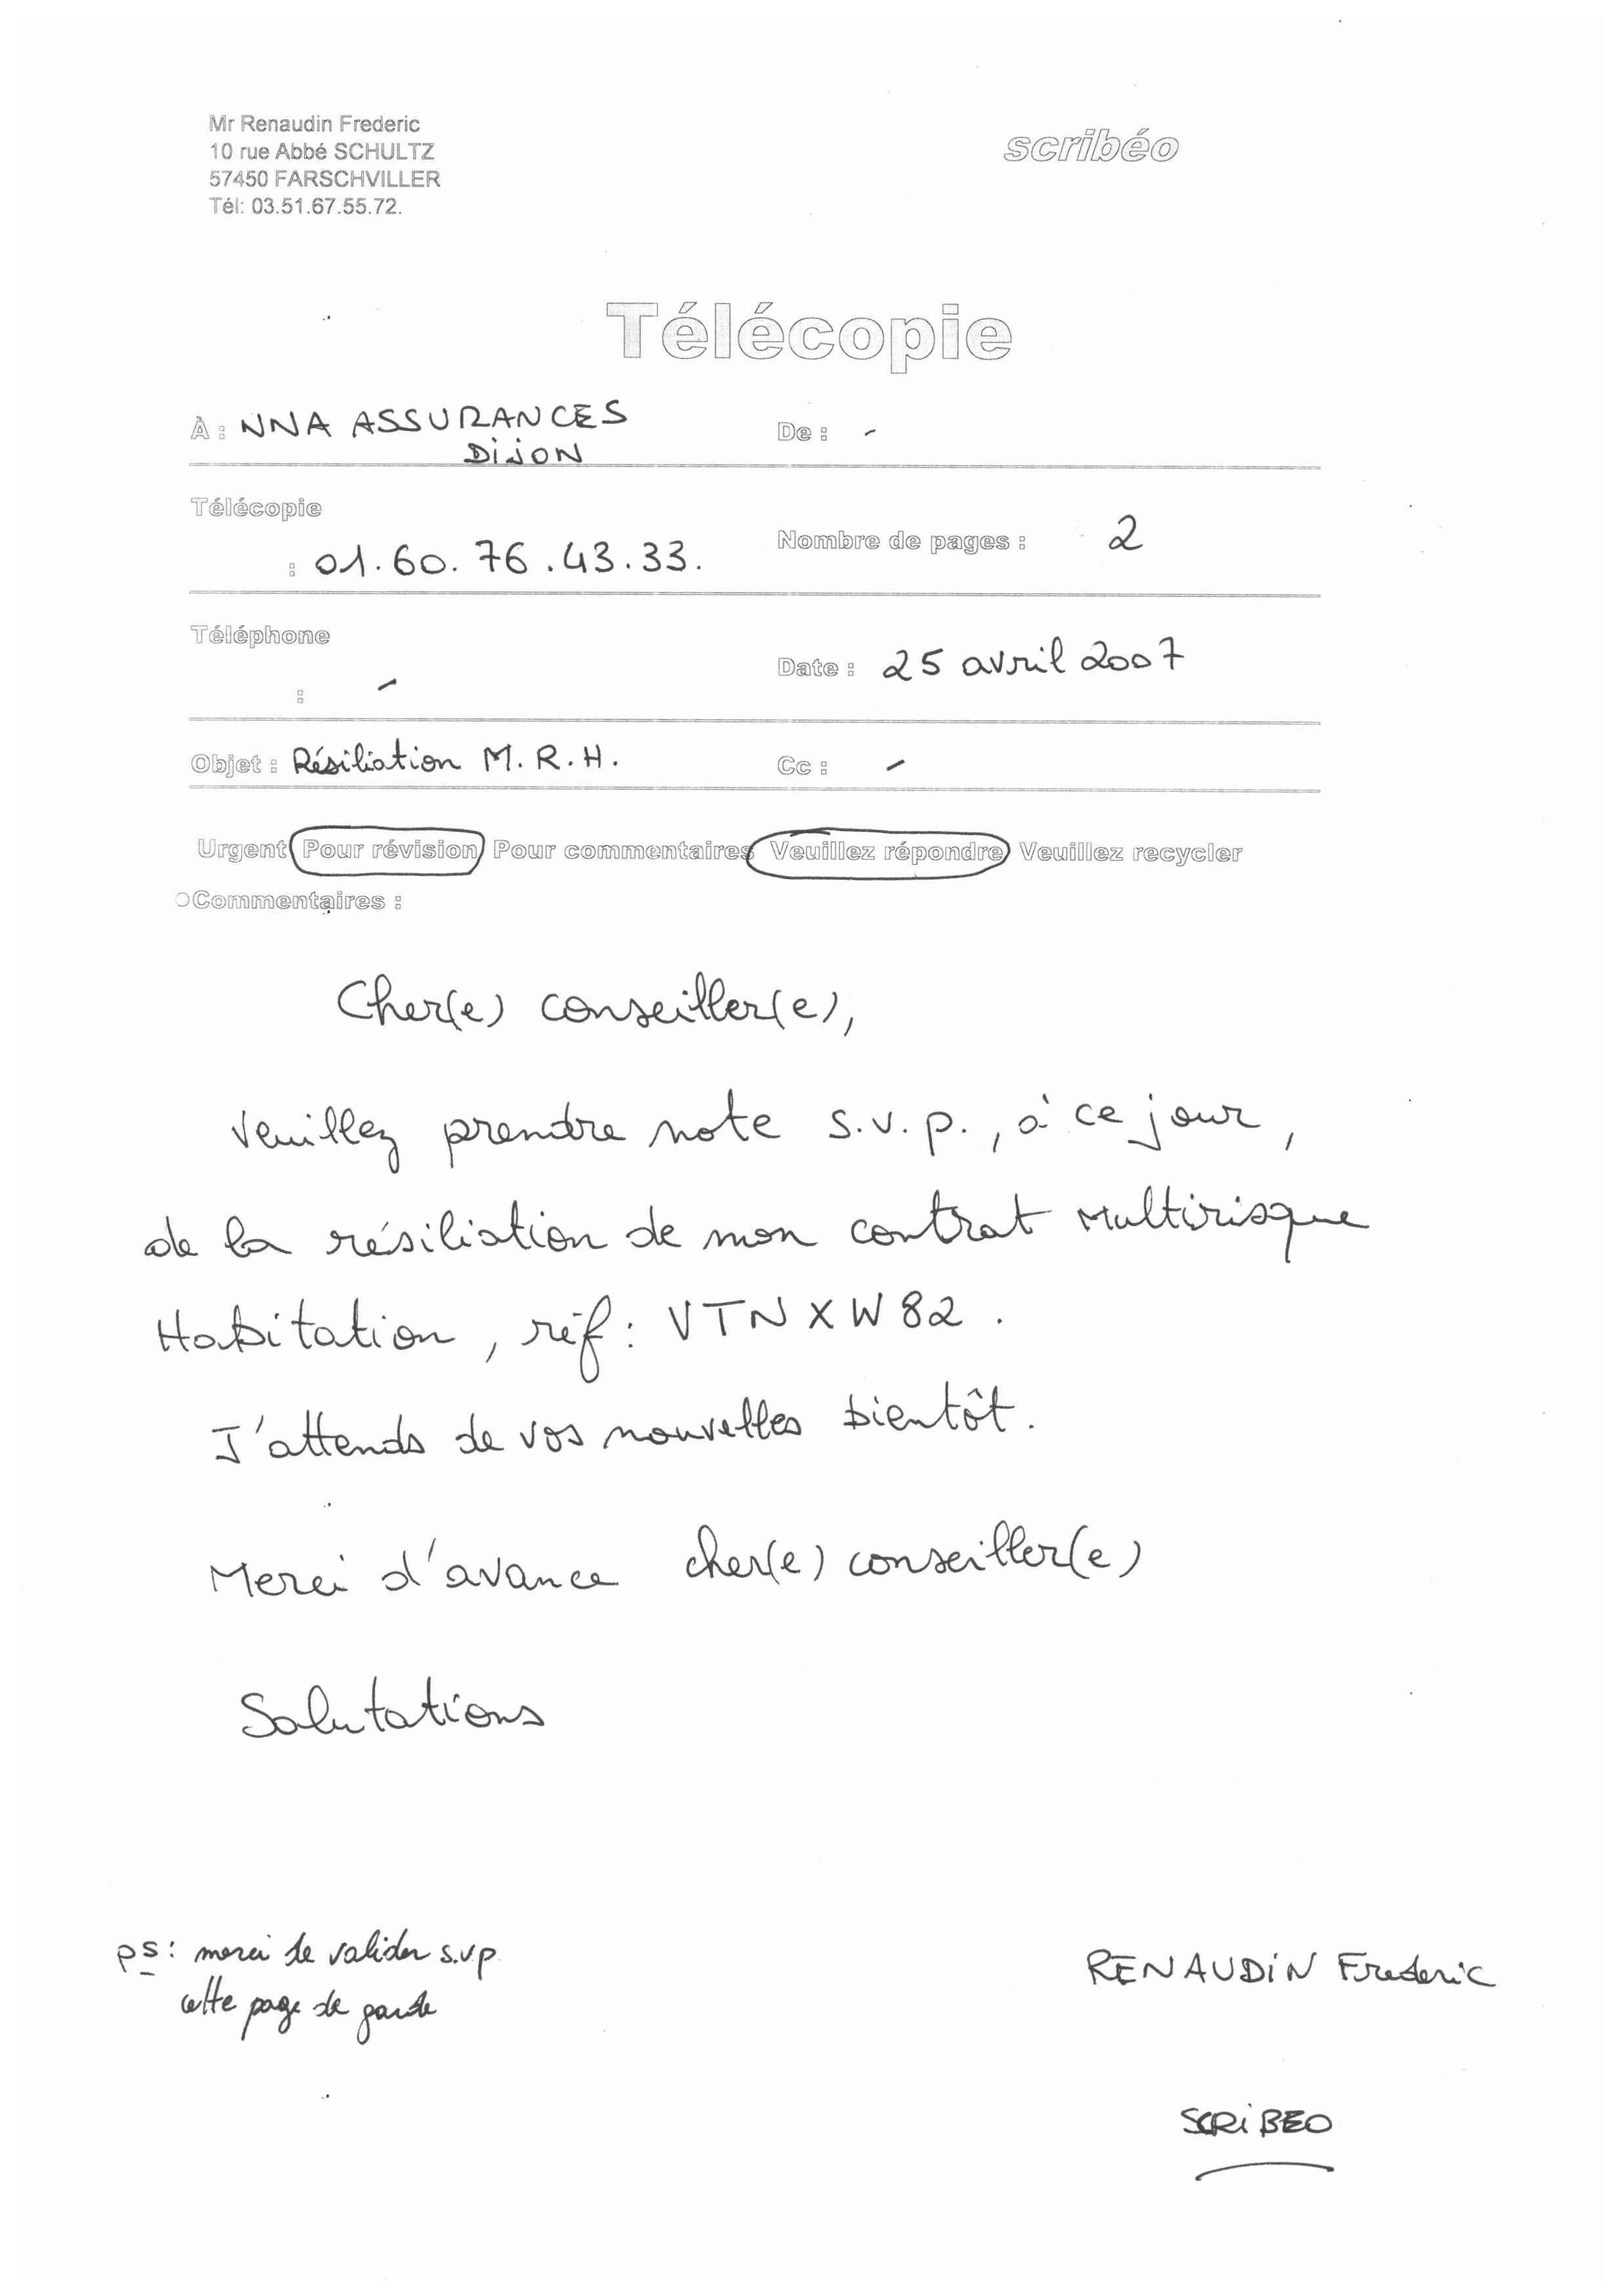 Mr Renaudin Frederic
10 rue Abbé SCHULTZ
57450 FARSCHVILLER
Tél: 03.51.67.55.72.
scribéo
Télécopie
À : NNA ASSURANCES
DiJON
De : -
Télécopie
: 01.60.76.43.33.
Nombre de pages : 2
Téléphone
: -
Date : 25 avril 2007
Objet : Résiliation M.R.H.
Cc : -
Urgent Pour révision Pour commentaires Veuillez répondre Veuillez recycler
Commentaires :
Cher(e) conseiller(e),
Veuillez prendre note s.v.p., à ce jour,
de la résiliation de mon contrat Multirisque
Habitation, réf : VTNXW82.
J'attends de vos nouvelles bientôt.
Merci d'avance cher(e) conseiller(e)
Salutations
ps : merci de valider s.v.p.
cette page de garde
RENAUDiN Frederic
SCRiBEO